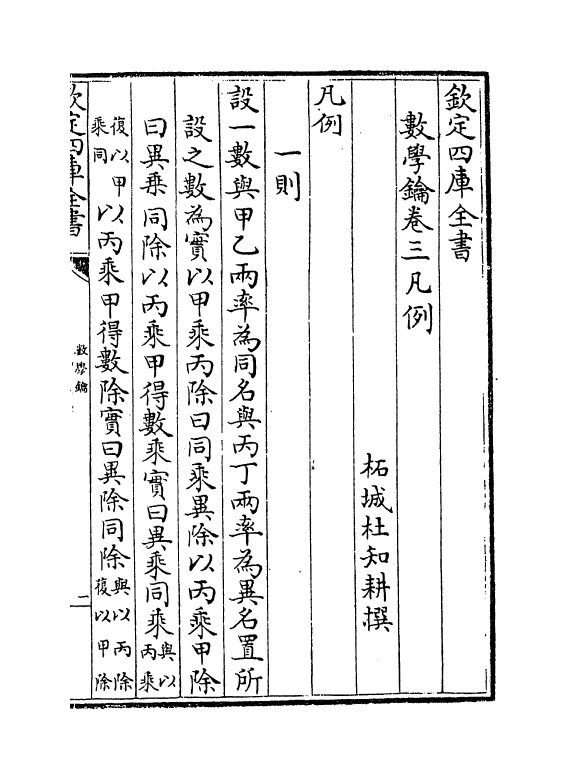 欽定四庫全書
數學鑰卷三凡例
柘城杜知耕撰
凡例
一則
設一數與甲乙兩率為同名與丙丁兩率為異名置所
設之數為實以甲乘丙除曰同乘異除以丙乘甲除
曰異乘同除以丙乘甲得數乘實曰異乘同乘與以丙乘
復以甲乘同以丙乘甲得數除實曰異除同除與以丙除復以甲除
欽定四庫全書
數學鑰